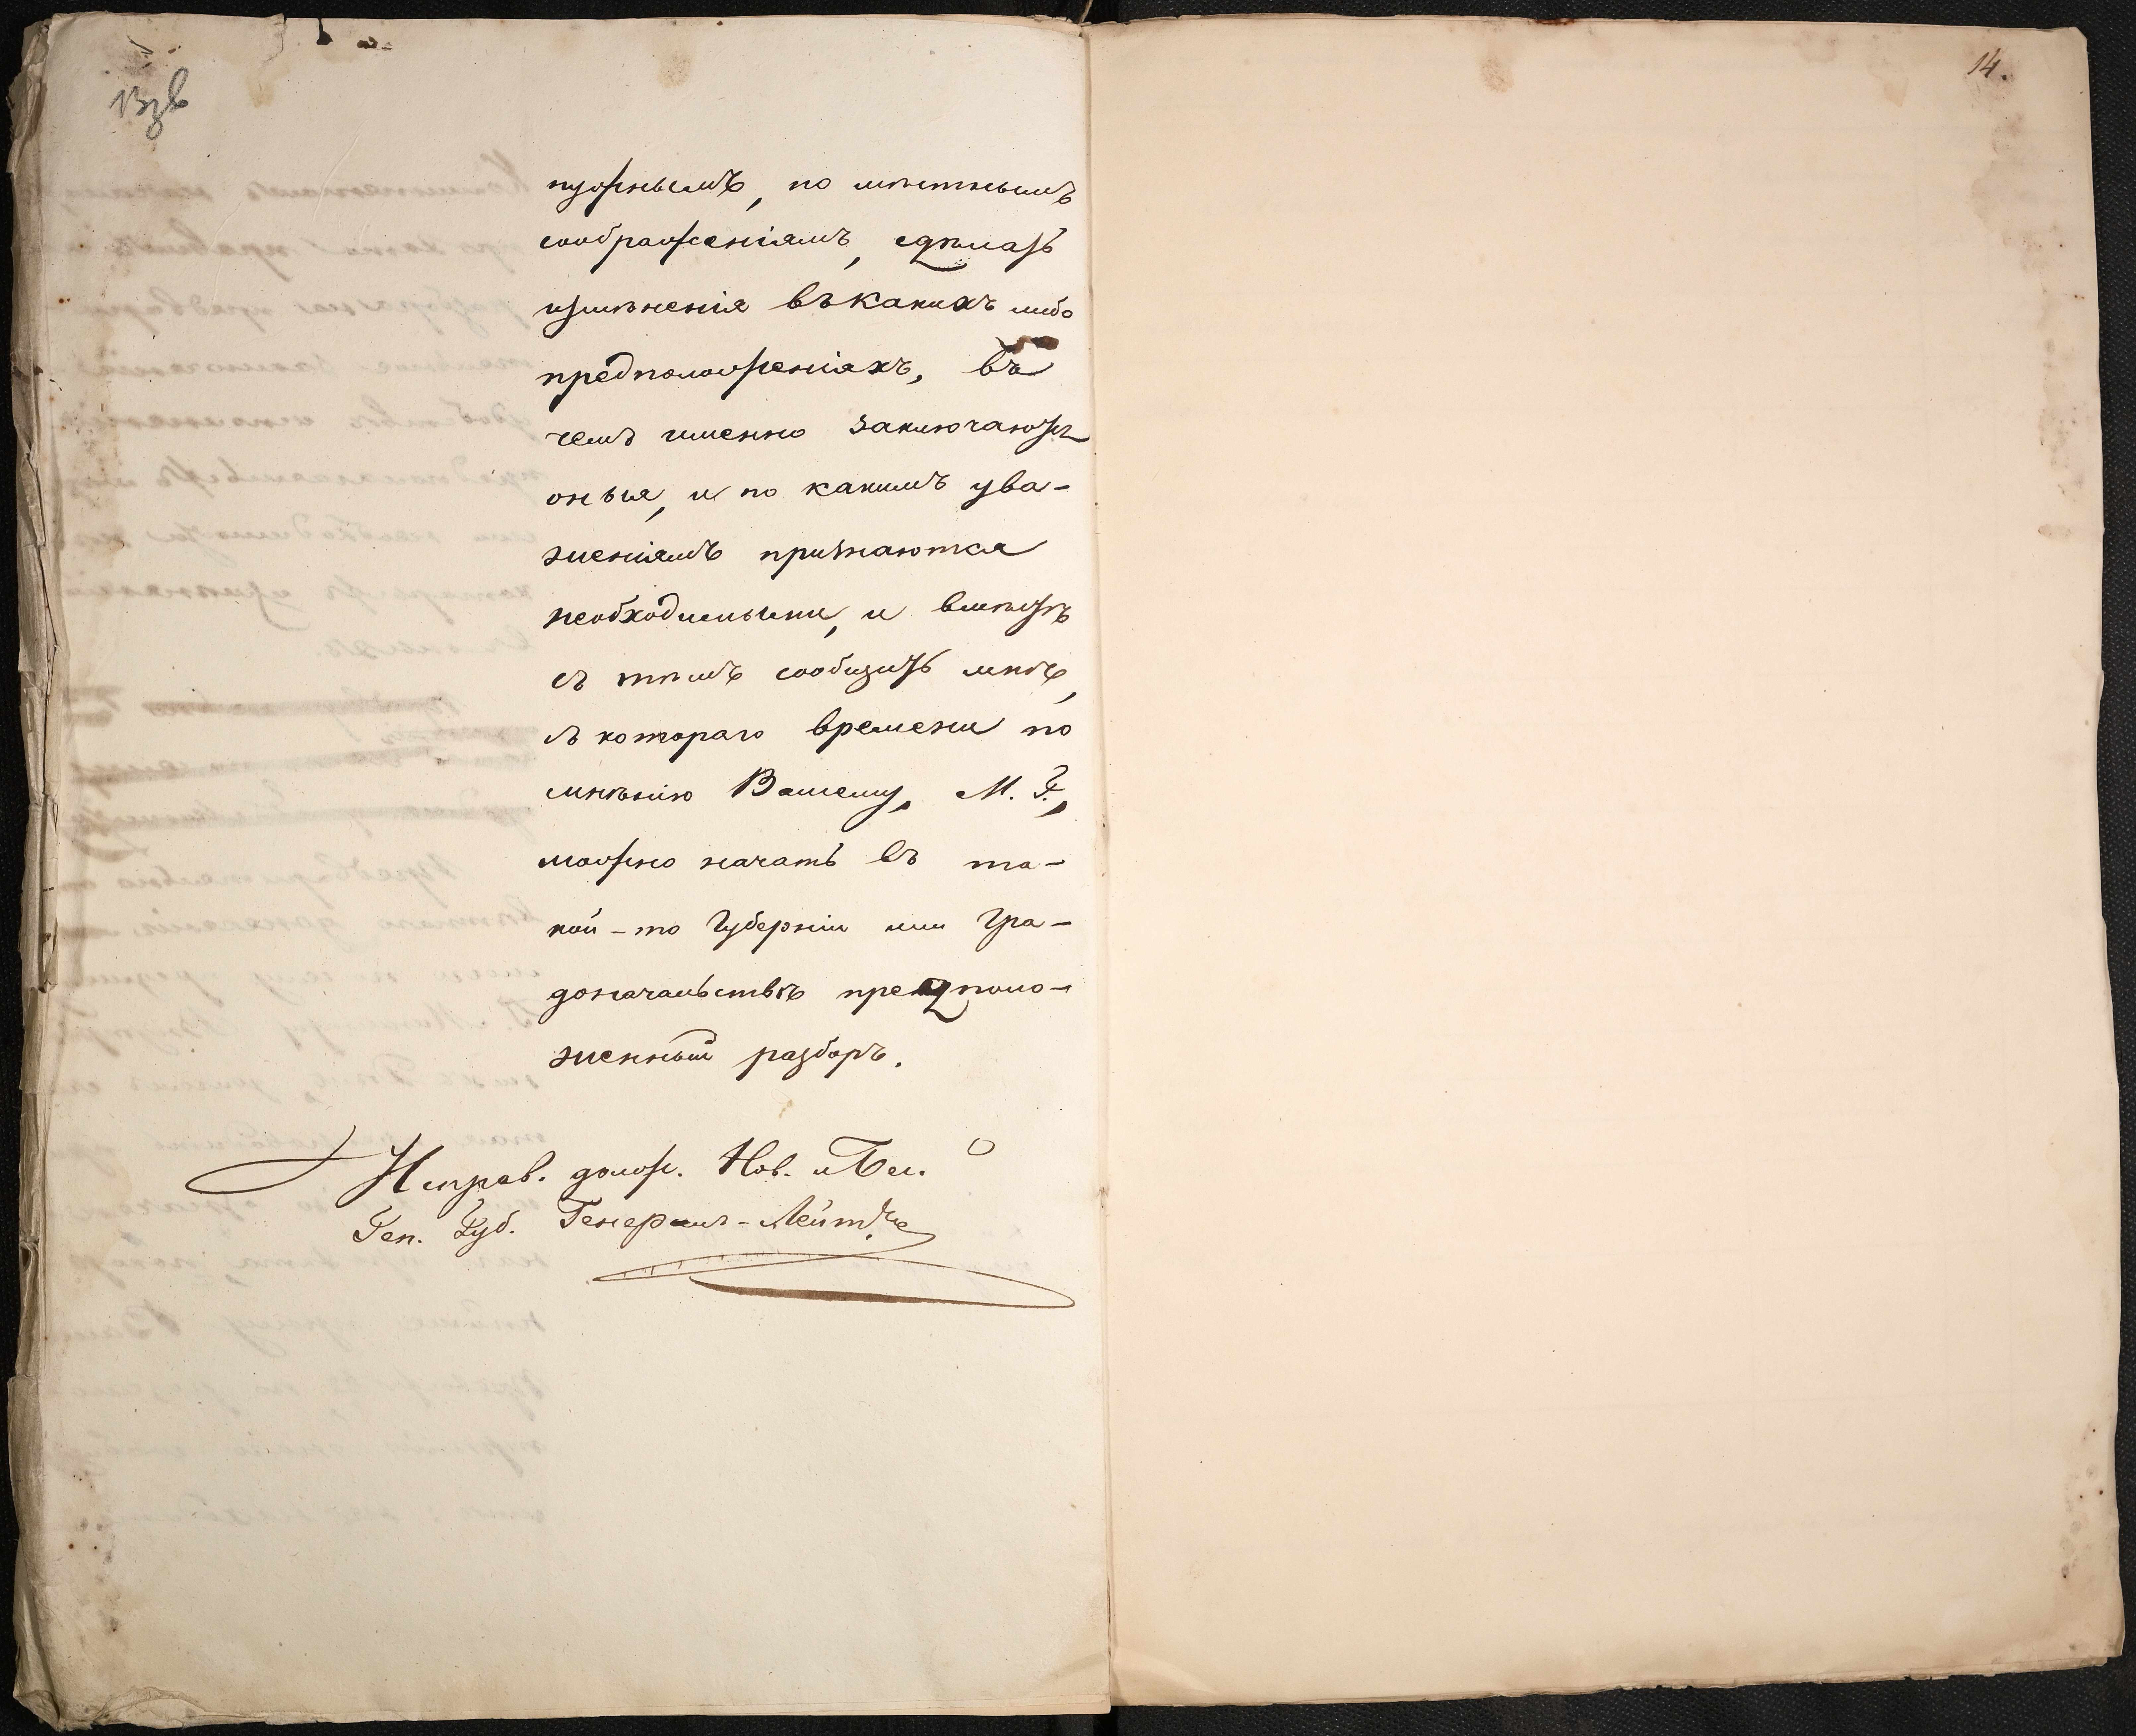 13зв
14.
нужнымъ, по мѣстнымъ
соображеніямъ, сдѣлать
измѣненія въ какихъ либо
предположеніяхъ, въ
чемъ именно заключаются
оныя, и по какимъ ува-
женіямъ признаются
необходимыми, и вмѣстѣ
съ тѣмъ сообщить мнѣ,
съ котораго времени по
мнѣнію Вашему, М. Г.,
можно начать въ та-
кой-то Губерніи или Гра-
доначальствѣ предполо-
женный разборъ.
Исправ. долж. Нов. и Бес.
Ген. Губ. Генералъ-Лейт.